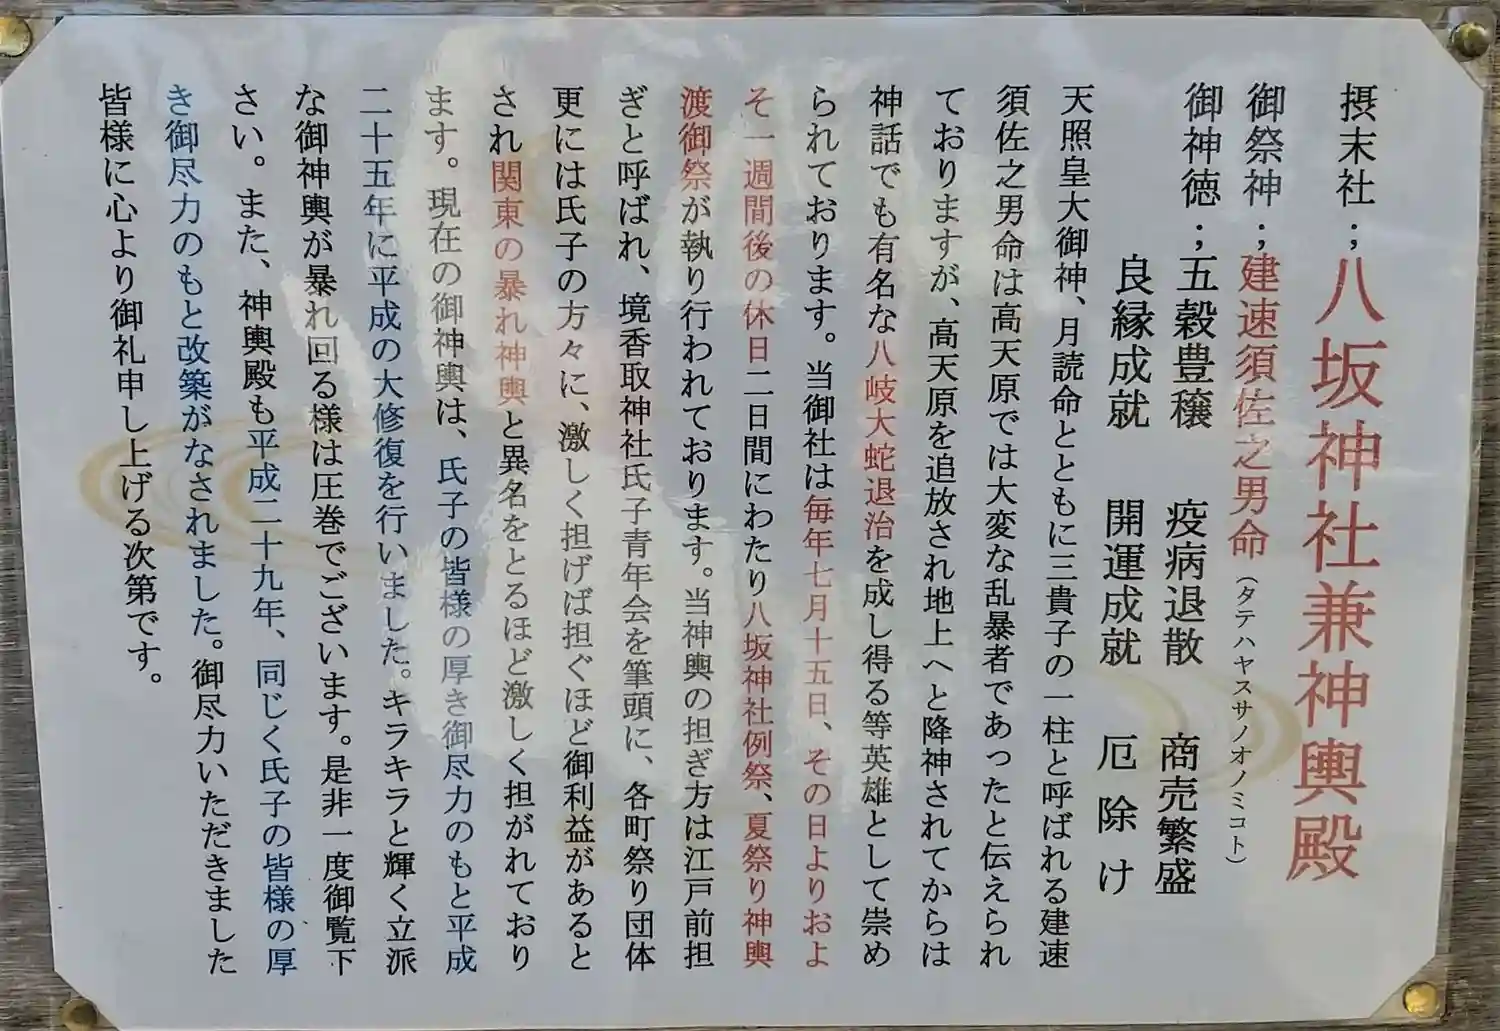 摂末社；八坂神社兼神輿殿
御祭神；建速須佐之男命（タテハヤスサノオノミコト）
御神徳；五穀豊穣　疫病退散　商売繁盛
良縁成就　開運成就　厄除け
天照皇大御神、月読命とともに三貴子の一柱と呼ばれる建速
須佐之男命は高天原では大変な乱暴者であったと伝えられ
ておりますが、高天原を追放され地上へと降神されてからは
神話でも有名な八岐大蛇退治を成し得る等英雄として崇め
られております。当御社は毎年七月十五日、その日よりおよ
そ一週間後の休日二日間にわたり八坂神社例祭、夏祭り神輿
渡御祭が執り行われております。当神輿の担ぎ方は江戸前担
ぎと呼ばれ、境香取神社氏子青年会を筆頭に、各町祭り団体
更には氏子の方々に、激しく担げば担ぐほど御利益があると
され関東の暴れ神輿と異名をとるほど激しく担がれており
ます。現在の御神輿は、氏子の皆様の厚き御尽力のもと平成
二十五年に平成の大修復を行いました。キラキラと輝く立派
な御神輿が暴れ回る様は圧巻でございます。是非一度御覧下
さい。また、神輿殿も平成二十九年、同じく氏子の皆様の厚
き御尽力のもと改築がなされました。御尽力いただきました
皆様に心より御礼申し上げる次第です。